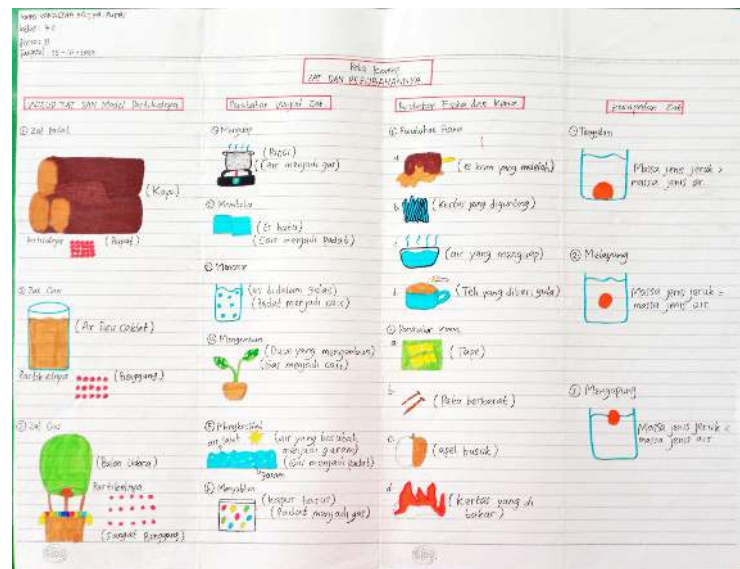 Peta Konsep
ZAT DAN PERUBAHANNYA
WUJUD ZAT DAN Model Partikelnya
① Zat Padat
(Kayu)
Partikelnya
(Rapat)
② Zat Cair
(Air Susu Coklat)
Partikelnya
(Renggang)
③ Zat Gas
(Balon Udara)
Partikelnya
(Sangat Renggang)
Perubahan Wujud Zat
Menguap
(Panci)
(Air menjadi gas)
(Es batu)
(Cair menjadi Padat)
Mencair
(es didalam gelas)
(Padat menjadi cair)
Mengembun
(Daun yang mengembun)
(Gas menjadi cair)
air laut
(air yang berubah
menjadi garam)
garam
menjadi padat)
Menyublim
(kapur barus)
(Padat menjadi gas)
Perubahan Fisika dan Kimia
Perubahan Fisika
a.
(Es krim yang meleleh)
b.
(Kertas yang digunting)
c.
(air yang menguap)
d.
(Teh yang diberi gula)
Perubahan Kimia
a.
(Tape)
b.
(Paku berkarat)
c.
(apel busuk)
d.
(Kertas yang di
bakar)
Kerapatan Zat
① Tenggelam
Massa jenis jeruk >
massa jenis air.
② Melayang
Massa jenis jeruk =
massa jenis air.
③ Mengapung
Massa jenis jeruk <
massa jenis air.